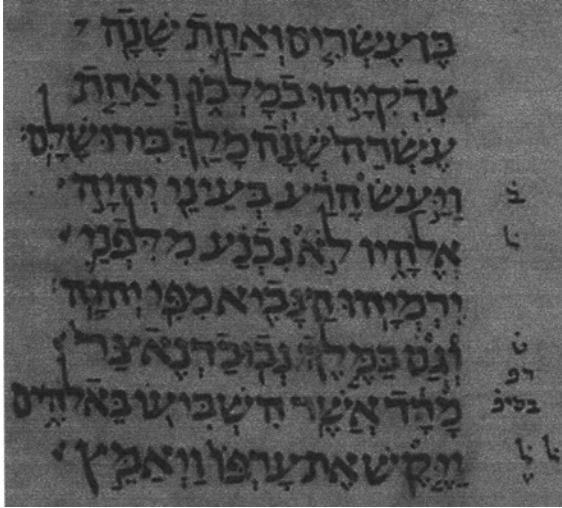 בֶּן־עֶשְׂרִים וְאַחַת שָׁנָה
צִדְקִיָּהוּ בְמָלְכוֹ וְאַחַת
עֶשְׂרֵה שָׁנָה מָלַךְ בִּירוּשָׁלָ͏ִם׃
וַיַּעַשׂ הָרַע בְּעֵינֵי יְהוָה ב
אֱלֹהָיו לֹא נִכְנַע מִלִּפְנֵי ל
יִרְמְיָהוּ הַנָּבִיא מִפִּי יְהוָה׃
וְגַם בַּמֶּלֶךְ נְבוּכַדְנֶאצַּר
מָרָד אֲשֶׁר הִשְׁבִּיעוֹ בֵּאלֹהִים
וַיֶּקֶשׁ אֶת־עָרְפּוֹ וַיְאַמֵּץ ל ל